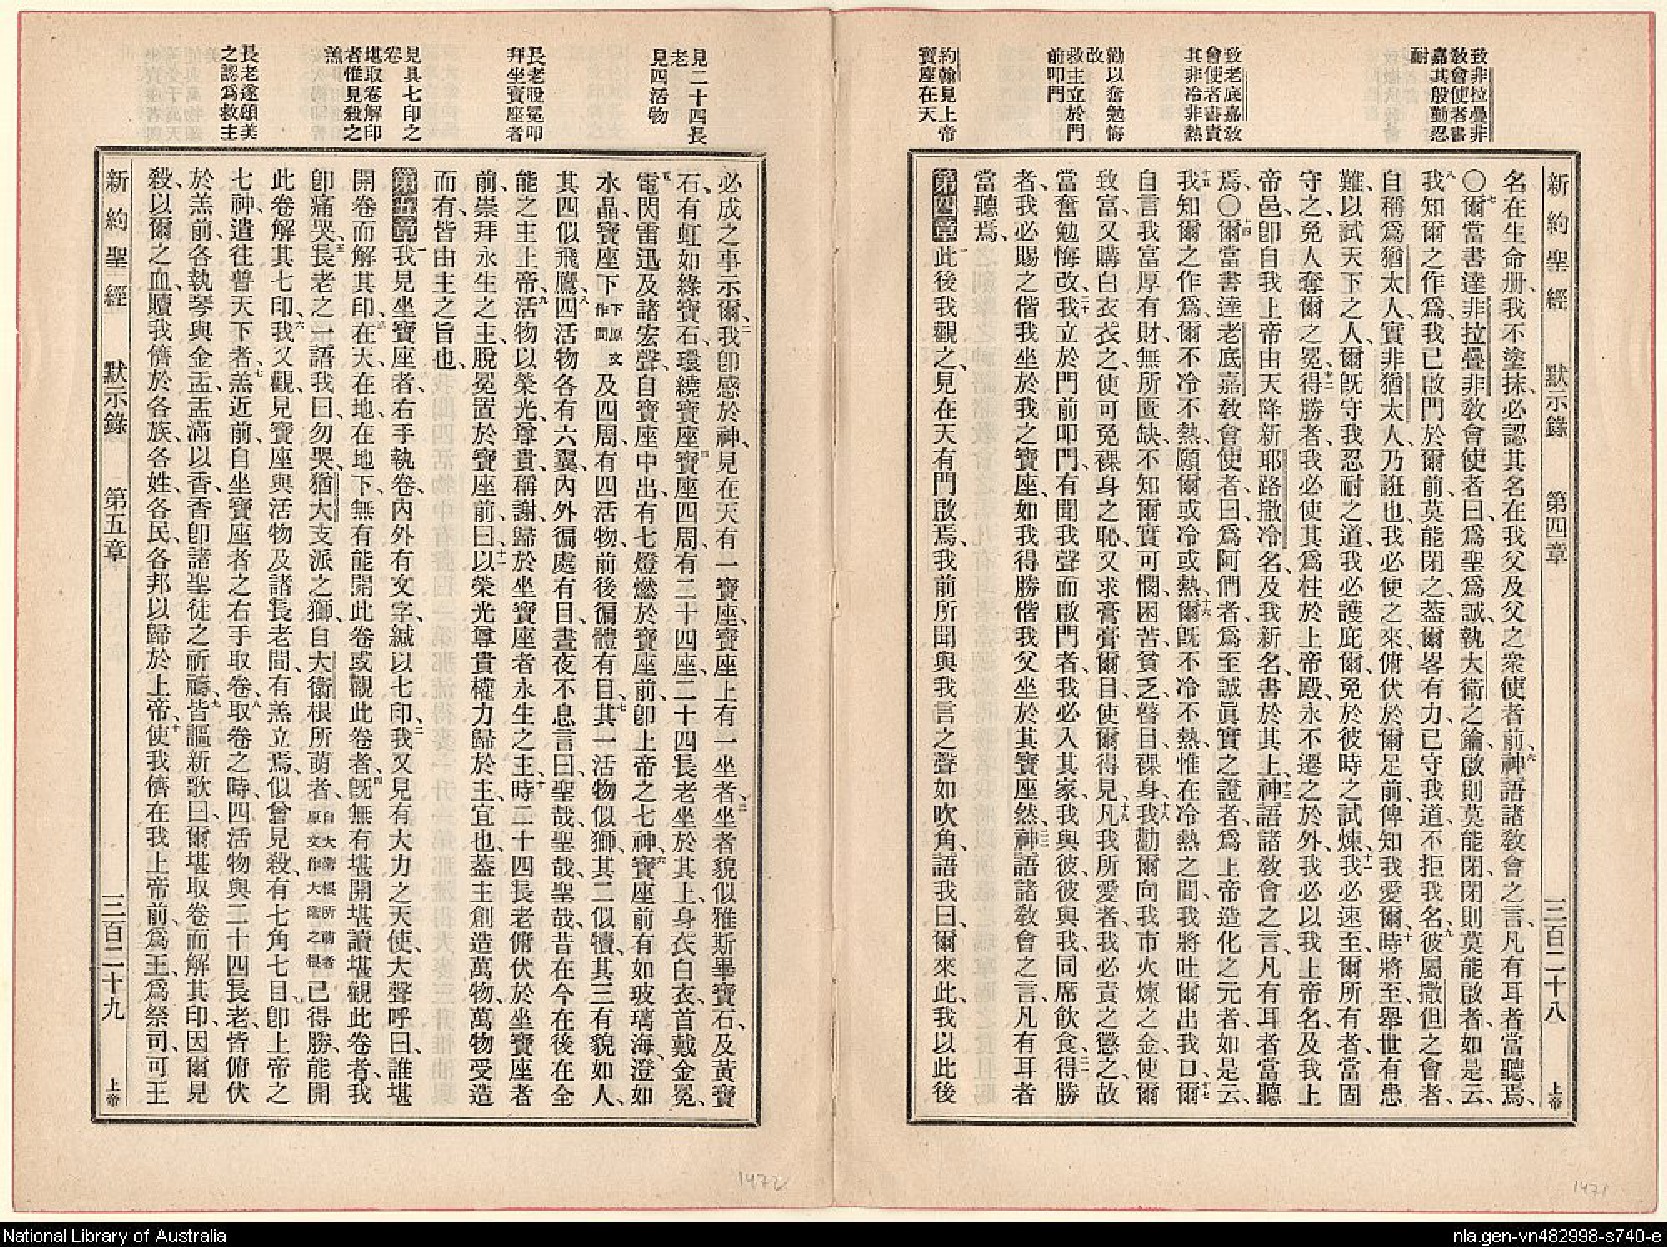 新約聖經 默示錄 第四章 三百二十八 上帝
致非拉疊非
教會使者書
嘉其殷勤忍
耐
致老底嘉教
會使者書責
其非冷非熱
勸以奮勉悔
改
救主立於門
前叩門
約翰見上帝
寶座在天
名在生命册、我不塗抹、必認其名在我父及父之衆使者前、六神語諸教會之言、凡有耳者當聽焉、
○七爾當書達非拉疊非教會使者曰、爲聖爲誠、執大衛之鑰、啟則莫能閉、閉則莫能啟者、如是云、
八我知爾之作爲、我已啟門於爾前、莫能閉之、蓋爾畧有力、已守我道、不拒我名、九彼屬撒但之會者、
自稱爲猶太人、實非猶太人、乃誑也、我必使之來、俯伏於爾足前、俾知我愛爾、十時將至、舉世有患
難、以試天下之人、爾旣守我忍耐之道、我必護庇爾、免於彼時之試煉、十一我必速至、爾所有者、當固
守之、免人奪爾之冕、十二得勝者、我必使其爲柱於上帝殿、永不遷之於外、我必以我上帝名、及我上
帝邑、卽自我上帝由天降新耶路撒冷名、及我新名、書於其上、十三神語諸教會之言、凡有耳者當聽
焉、○十四爾當書達老底嘉教會使者曰、爲阿們者、爲至誠眞實之證者、爲上帝造化之元者、如是云、
十五我知爾之作爲、爾不冷不熱、願爾或冷或熱、十六爾旣不冷不熱、惟在冷熱之間、我將吐爾出我口、十七爾
自言我富厚有財、無所匱缺、不知爾實可憫、困苦貧乏、瞽目裸身、十八我勸爾向我市火煉之金、使爾
致富、又購白衣衣之、使可免裸身之恥、又求膏膏爾目、使爾得見、十九凡我所愛者、我必責之懲之、故
當奮勉悔改、二十我立於門前叩門、有聞我聲而啟門者、我必入其家、我與彼、彼與我、同席飲食、二一得勝
者、我必賜之偕我坐於我之寶座、如我得勝、偕我父坐於其寶座然、二二神語諸教會之言、凡有耳者
當聽焉、
第四章 一此後我觀之、見在天有門啟焉、我前所聞與我言之聲如吹角、語我曰、爾來此、我以此後
新約聖經 默示錄 第五章 三百二十九 上帝
見二十四長
老
見四活物
長老脫冕叩
拜坐寶座者
見具七印之
卷
堪取卷解印
者惟見殺之
羔
長老遂頌美
之認爲救主
必成之事示爾、二我卽感於神、見在天有一寶座、寶座上有一坐者、三坐者貌似雅斯畢寶石、及黃寶
石、有虹如綠寶石、環繞寶座、四寶座四周、有二十四座、二十四長老坐於其上、身衣白衣、首戴金冕、
五電閃雷迅及諸宏聲、自寶座中出、有七燈燃於寶座前、卽上帝之七神、六寶座前有如玻璃海、澄如
水晶、寶座下下原文作間及四周、有四活物、前後徧體有目、七其一活物似獅、其二似犢、其三有貌如人、
其四似飛鷹、八四活物各有六翼、內外徧處有目、晝夜不息言曰、聖哉、聖哉、聖哉、昔在今在後在全
能之主上帝、九活物以榮光、尊貴、稱謝、歸於坐寶座者永生之主時、十二十四長老俯伏於坐寶座者
前、崇拜永生之主、脫冕置於寶座前曰、十一以榮光尊貴權力歸於主、宜也、蓋主創造萬物、萬物受造
而有、皆由主之旨也、
第五章 一我見坐寶座者、右手執卷、內外有文字、緘以七印、二我又見有大力之天使、大聲呼曰、誰堪
開卷而解其印、三在天、在地、在地下、無有能開此卷或觀此卷者、四旣無有堪開堪讀堪觀此卷者、我
卽痛哭、五長老之一語我曰、勿哭、猶大支派之獅、自大衛根所萌者自大衛根所萌者原文作大衛之根已得勝、能開
此卷、解其七印、六我又觀、見寶座與活物及諸長老間、有羔立焉、似曾見殺、有七角七目、卽上帝之
七神、遣往普天下者、七羔近前、自坐寶座者之右手取卷、八取卷之時、四活物與二十四長老、皆俯伏
於羔前、各執琴與金盂、盂滿以香、香卽諸聖徒之祈禱、九皆謳新歌曰、爾堪取卷而解其印、因爾見
殺、以爾之血、贖我儕於各族、各姓、各民、各邦以歸於上帝、十使我儕在我上帝前、爲王、爲祭司、可王
1472
1471
National Library of Australia
nla.gen-vn482998-s740-e